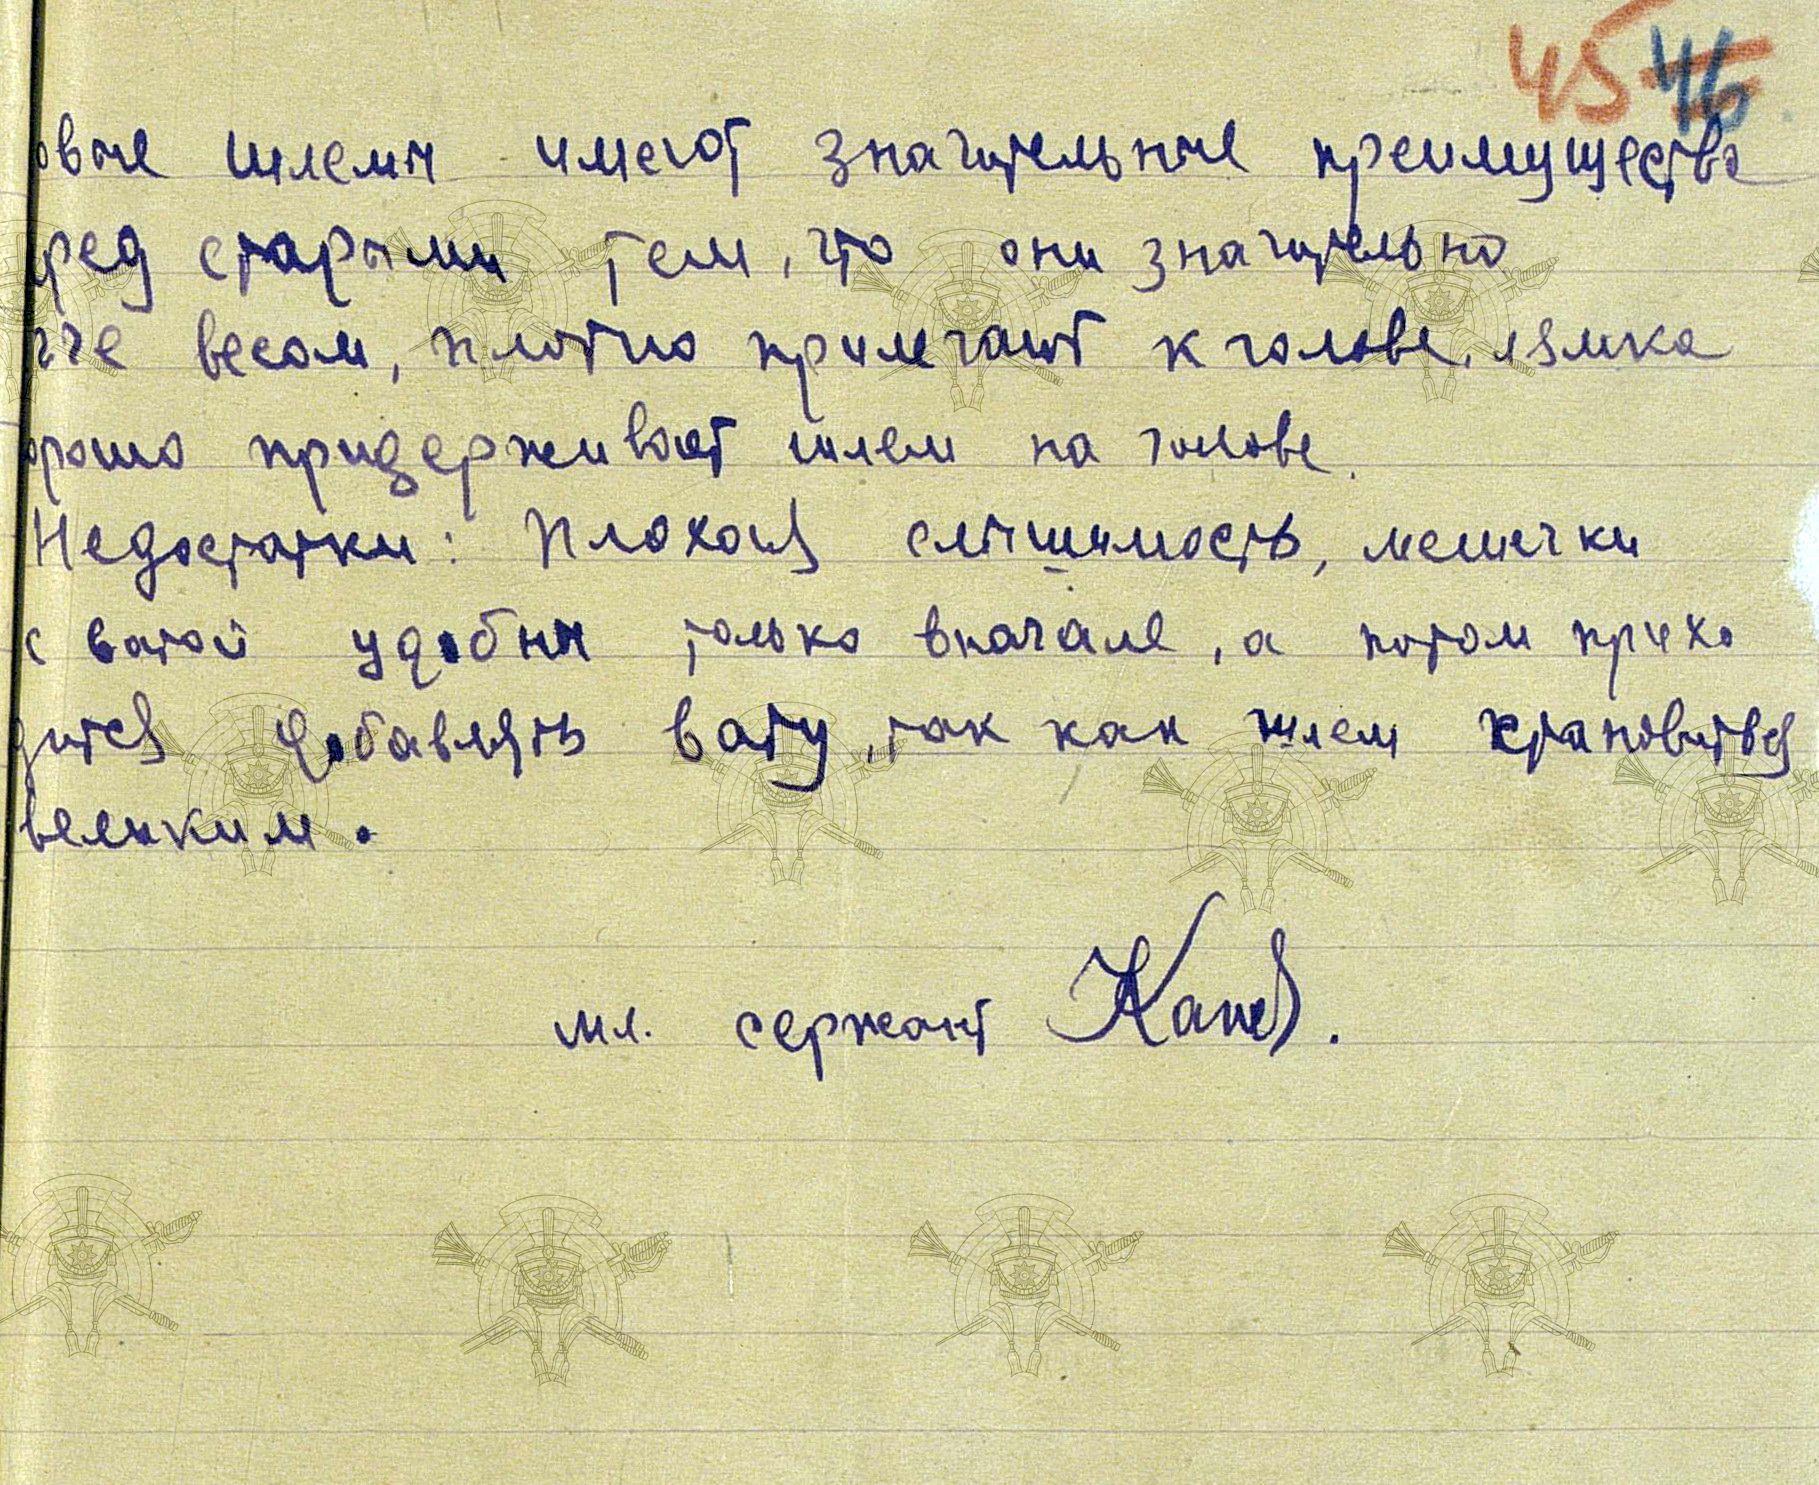 45 46
овые шлемы имеют значительные преимущества
ред старыми тем, что они значительно
гче весом, плотно прилегают к голове, лямка
орошо придерживает шлем на голове.
Недостатки: Плохая слышимость, мешечки
с ватой удобны только вначале, а потом прихо
дится добавлять вату, так как шлем становиться
великим.
мл. сержант